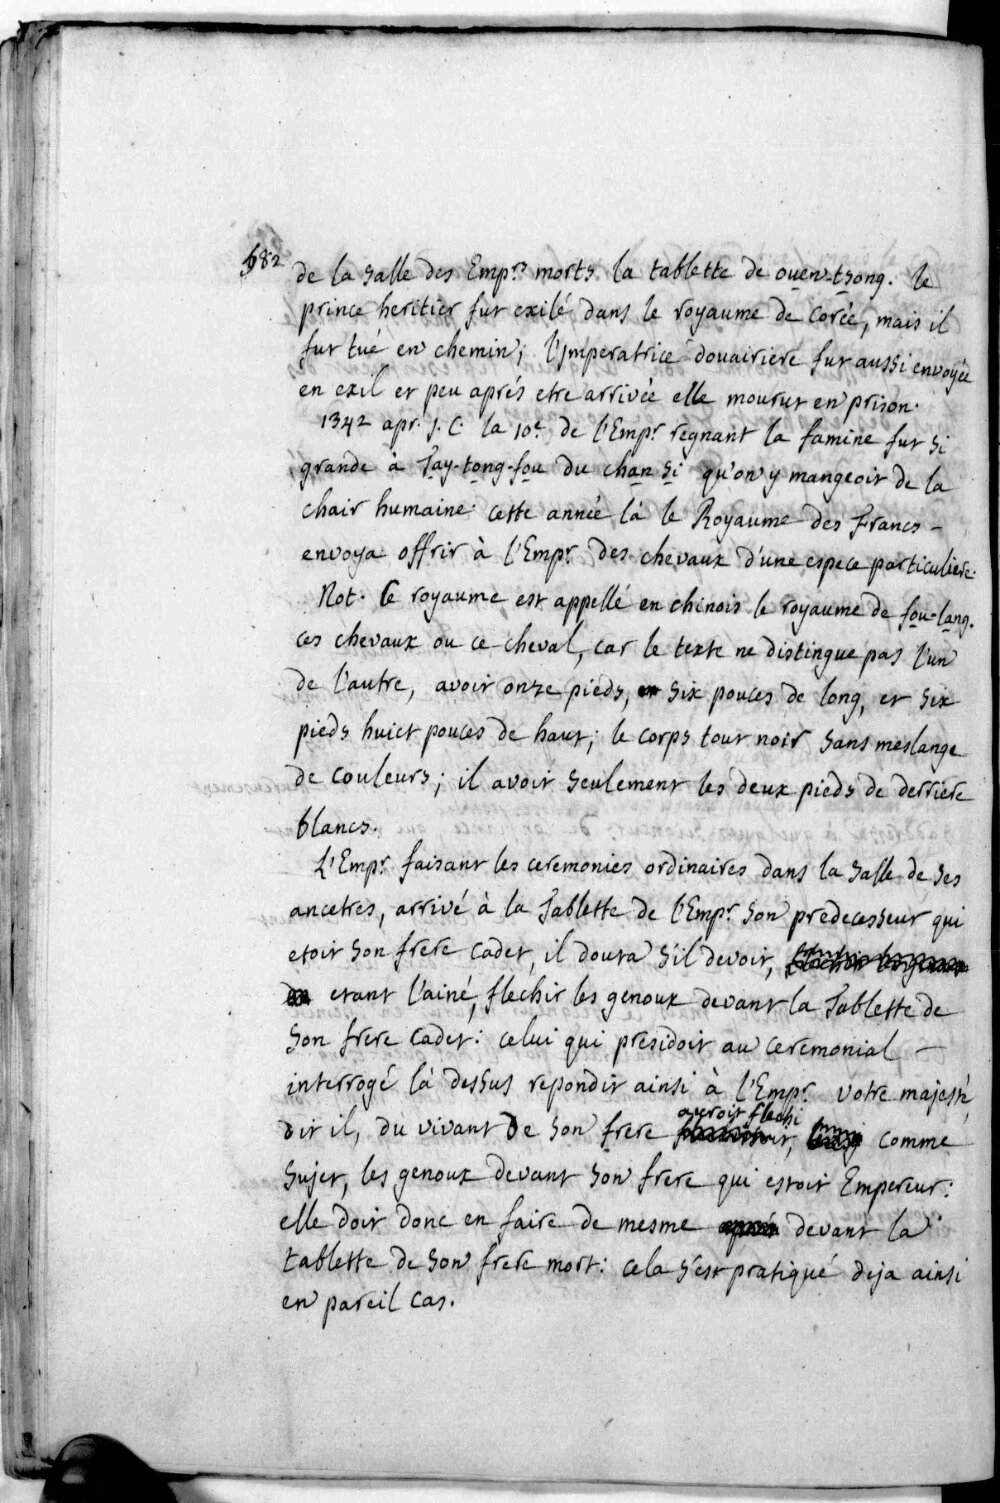 682
de la salle des Emp.rs morts la tablette de ouen-tsong. le
prince heritier fut exilé dans le royaume de Corée, mais il
fut tué en chemin; l'Imperatrice douairiere fut aussi envoyée
en exil et peu aprés etre arrivée elle mourut en prison.
1342 apr. J. C. la 10.e de l'Emp.r regnant la famine fut si
grande à Tay-tong-fou du chan si qu'on y mangeoit de la
chair humaine. cette année là le Royaume des Francs -
envoya offrir à l'Emp.r des chevaux d'une espece particuliere.
Not. Ce royaume est appellé en chinois le royaume de fou-lang.
ces chevaux ou ce cheval, car le texte ne distingue pas l'un
de l'autre, avoit onze pieds, six pouces de long, et six
pieds huict pouces de haut; le corps tout noir sans meslange
de couleurs; il avoit seulement les deux pieds de derriere
blancs.
L'Emp.r faisant les ceremonies ordinaires dans la salle de ses
ancetres, arrivé à la Tablette de l'Emp.r son predecesseur qui
etoit son frere cadet, il douta s'il devoit,
etant l'ainé, flechir les genoux devant la Tablette de
son frere cadet: celui qui presidoit au ceremonial -
interrogé là dessus repondit ainsi à l'Emp.r votre majesté
dit il, du vivant de son frere auroit flechi, comme
sujet, les genoux devant son frere qui estoit Empereur:
elle doit donc en faire de mesme devant la
tablette de son frere mort: cela s'est pratiqué deja ainsi
en pareil cas.